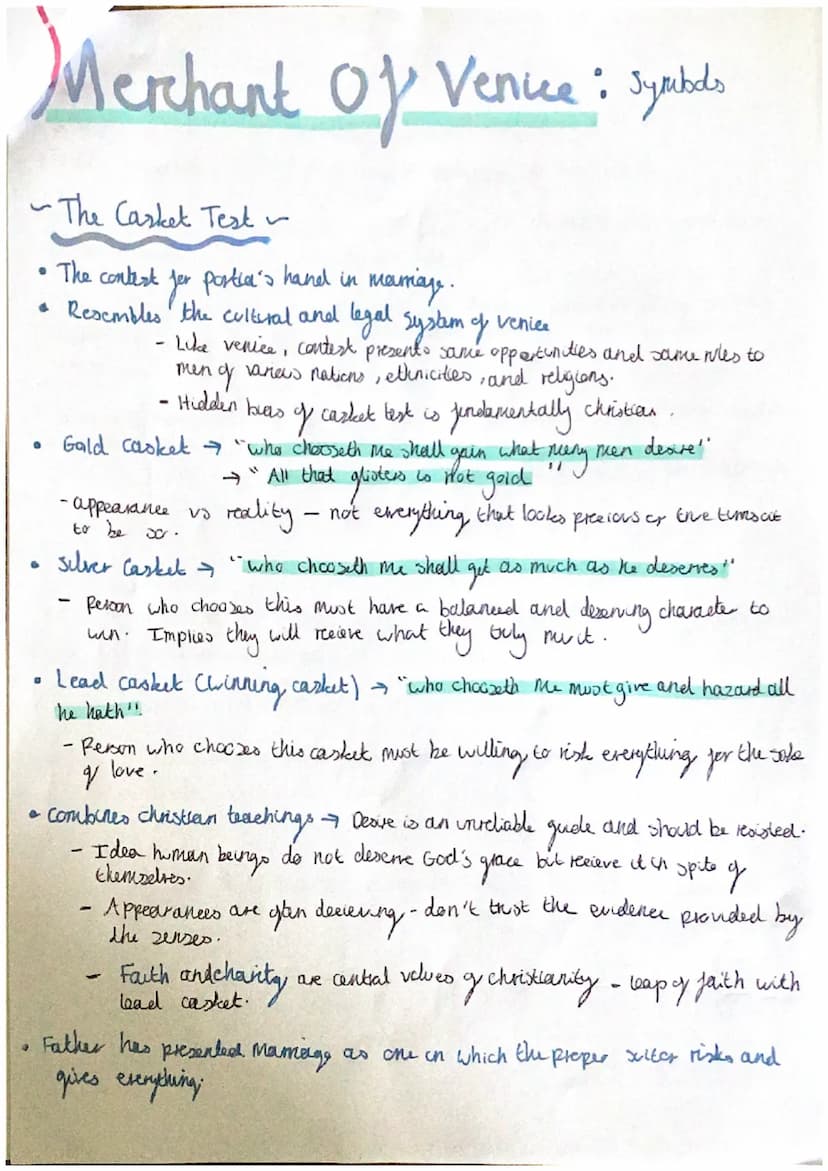 Merchant Of Venice: Symbols
~ The Casket Test ~
• The contest for portia's hand in marriage.
• Resembles the cultural and legal system of venice
- Like venice, contest presents same opportunities and same rules to
men of various nations, ethnicities, and religions.
- Hidden bias of casket test is fundamentally christian.
• Gold casket → "who chooseth me shall gain what many men desire"
→ "All that glisters is not gold"
- appearance vs reality - not everything that looks precious or true turns out
to be so.
• Silver Casket → "who chooseth me shall get as much as he deserves"
- Person who chooses this must have a balanced and deserving character to
win. Implies they will recieve what they truly merit.
• Lead casket (winning casket) → "who chooseth me must give and hazard all
he hath"
- Person who chooses this casket must be willing to risk everything for the sake
of love.
• Combines christian teachings → Desire is an unreliable guide and should be resisted.
- Idea human beings do not deserve God's grace but recieve it in spite of
themselves.
- Appearances are often decieving - don't trust the evidence provided by
the senses.
- Faith and charity are central values of christianity - leap of faith with
lead casket.
• Father has presented marriage as one in which the proper suitor risks and
gives everything.